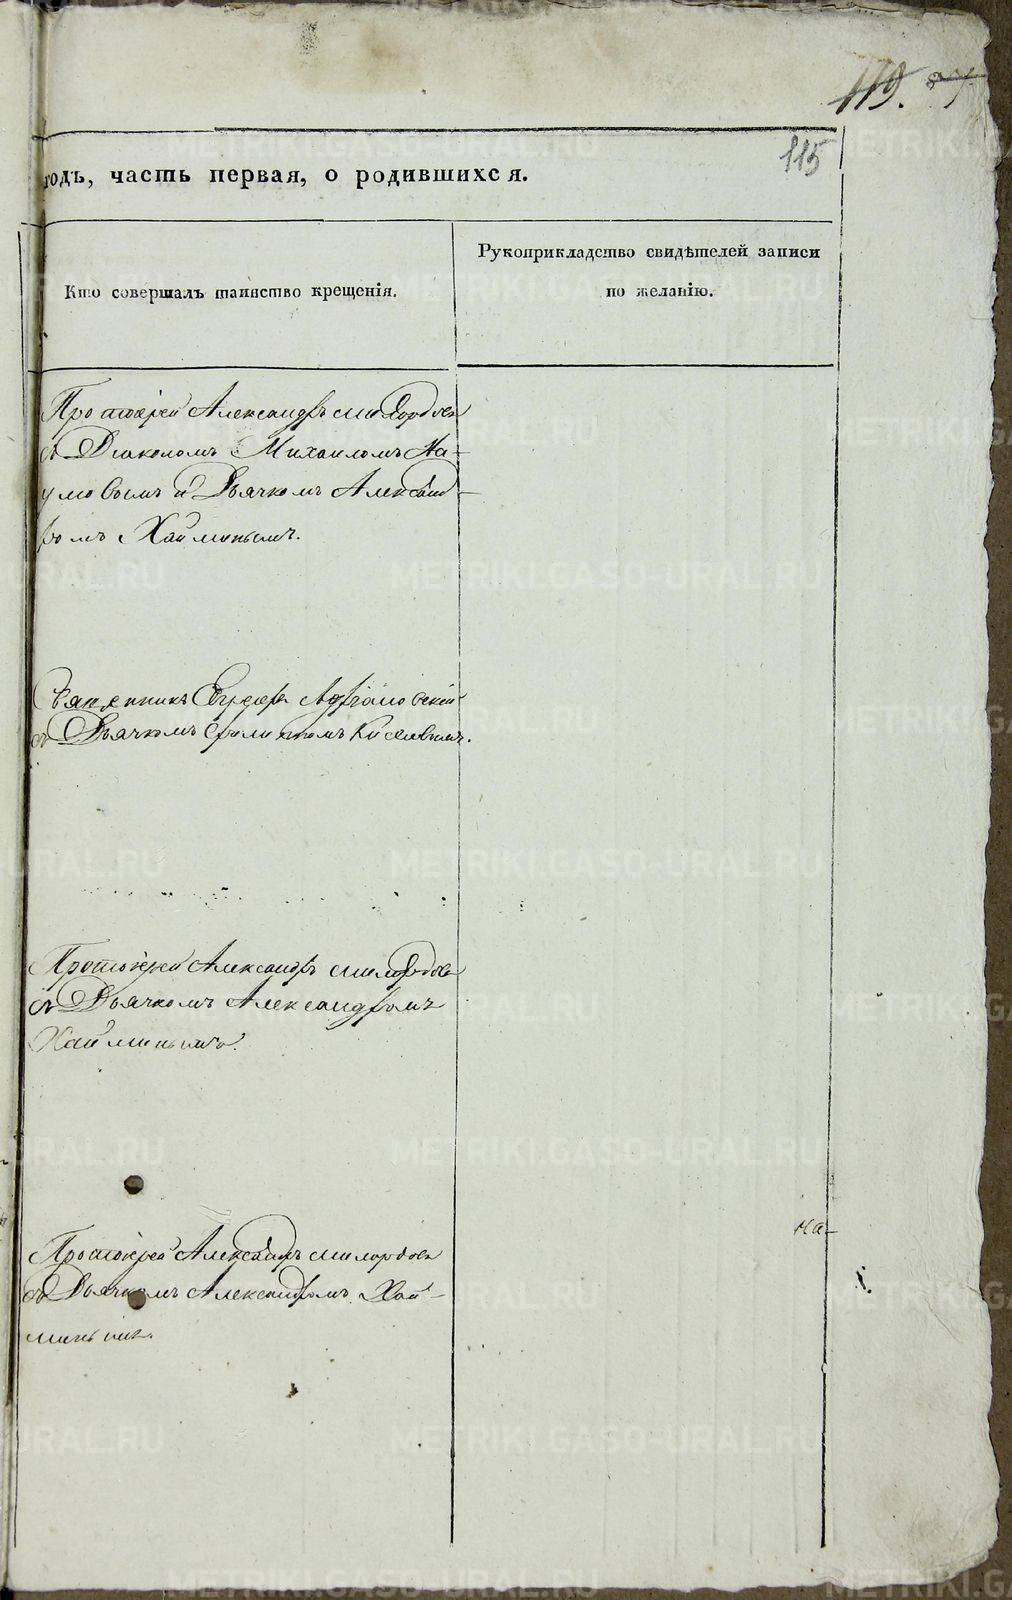 119.
115
годъ, часть первая, о родившихся.
Кто совершалъ таинство крещенія.
Рукоприкладство свидѣтелей записи
по желанію.
Протоіерей Александръ Милордовъ
съ Діакономъ Михаиломъ На-
умовымъ и Дьячкомъ Александ-
ромъ Хайминымъ.
Священникъ Андріановскій
съ Дьячкомъ Киселевымъ.
Протоіерей Александръ Милордовъ
съ Дьячкомъ Александромъ
Хайминымъ.
На-
Протоіерей Александръ Милордовъ
съ Дьячкомъ Александромъ Хай-
минымъ.
METRIKI.GASO-URAL.RU